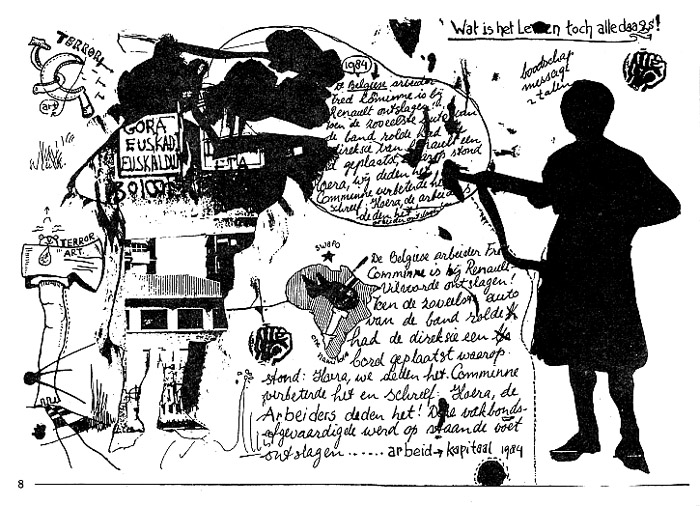 Wat is het Leven toch alledaags!
boodschap
message
2 talen
TERRORIST
art
GORA
EUSKADI
EUSKALDUN
ETA
BOICOT
TERROR
ART.
1984
De Belgiese arbeider
Fred Cominne is bij
Renault ontslagen
toen de zoveelste auto van
de band rolde had
direksie van Renault een
geplaatst, waarop stond
Hoera, wij deden het
Comminne verbeterde het
schreef: Hoera, de arbeiders
deden het
SWAPO
De Belgiese arbeider Fre
Comminne is bij Renault-
Vilvoorde ontslagen!
Toen de zoveelste auto
van de band rolde
had de direksie een
bord geplaatst waarop
stond: Hoera, we deden het. Comminne
verbeterde het en schreef: Hoera, de
Arbeiders deden het! Deze vakbonds-
afgevaardigde werd op staande voet
ontslagen...... arbeid → kapitaal 1984
8